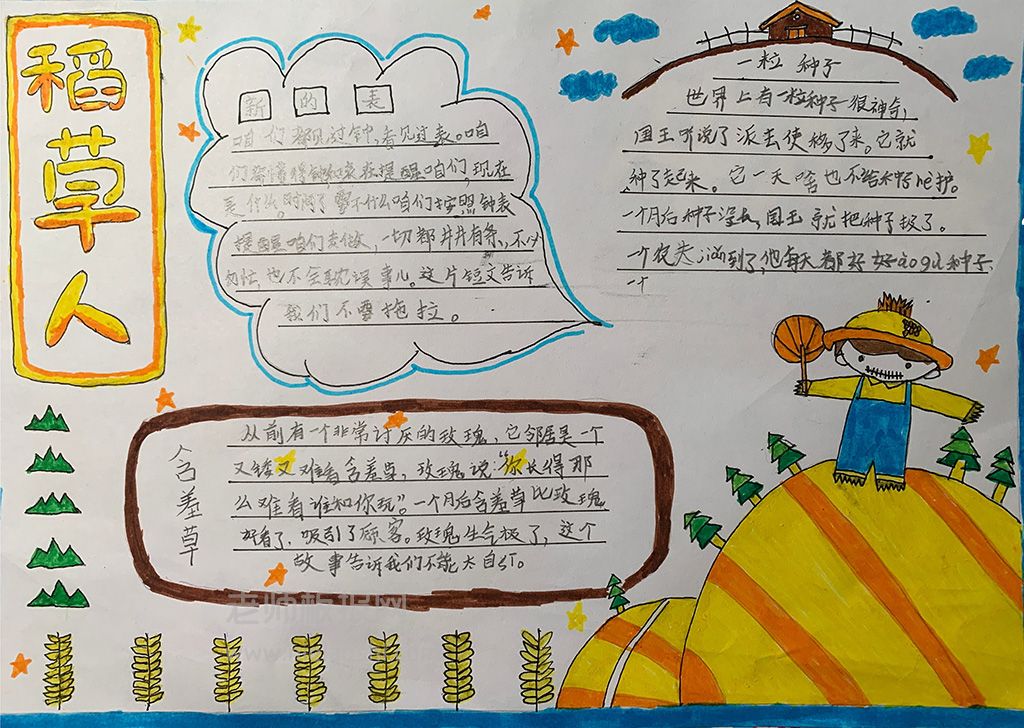 稻草人
新的表
咱们都见过钟,看见过表。咱
们都懂得钟和表在提醒咱们,现在
是什么时间了要干什么咱们按照钟表
提醒咱们去做,一切都井井有条,不
匆忙,也不会耽误事儿。这片短文告诉
我们不要拖拉。
一粒种子
世界上有一粒种子很神奇,
国王听说了派去使移了来。它就
种了起来。它一天啥也不给种子呵护。
一个月后种子没长,国王就把种子拔了。
一个农夫 到了,他每天都好好 种子、
一个
含羞草
从前有一个非常讨厌的玫瑰,它邻居是一个
又矮又难看含羞草,玫瑰说:“你长得那
么难看谁和你玩”。一个月后含羞草比玫瑰
好看了,吸引了顾客。玫瑰生气极了,这个
故事告诉我们不能太自
老师板报网